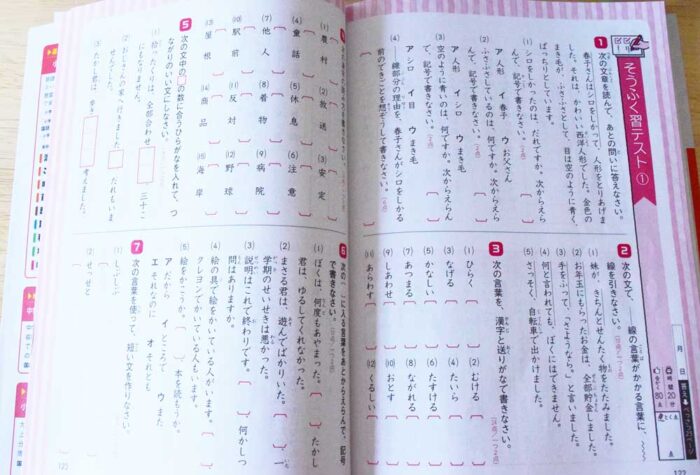 そうふく習テスト①
月 日
時間 20分
合かく 80点
とく点
点
1 次の文章を読んで、あとの問いに答えなさい。
春子さんはシロをしかって、人形をとりあげま
した。それは、かわいい西洋人形でした。金色の
まき毛が、ふさふさとして、目は空のように青く
ぱっちりとしています。
(1) シロをしかったのは、だれですか。次からえら
んで、記号で書きなさい。
ア 人形 イ 春子 ウ お父さん
(2) ふさふさしているのは、何ですか。次からえら
んで、記号で書きなさい。
ア 人形 イ シロ ウ まき毛
(3) 空のように青いのは、何ですか。次からえらん
で、記号で書きなさい。
ア シロ イ 目 ウ まき毛
(4) ――線部分の理由を、春子さんがシロをしかる
前のできごとを想ぞうして書きなさい。
2 次の文で、 線の言葉がかかる言葉に、
線を引きなさい。
(1) 妹が、きちんとせんたく物をたたみました。
(2) お年玉にもらったお金は、全部貯金しました。
(3) 手をふって、「さようなら。」と言いました。
(4) 何と言われても、ぼくにはできません。
(5) さっそく、自転車で出かけました。
3 次の言葉を、漢字と送りがなで書きなさい。
(1) ひらく
(2) むける
(3) なげる
(4) たいら
(5) かなしい
(6) たすける
(7) あつまる
(8) ながれる
(9) しあわせ
(10) おとす
(11) あらわす
(12) くるしい
122
(1) 農村
(2) 放送
(3) 安定
(4) 童話
(5) 休息
(6) 注意
(7) 他人
(8) 着物
(9) 病院
(10) 駅前
(11) 反対
(12) 野球
(13) 屋根
(14) 商品
(15) 海岸
5 次の文中の の数に合うひらがなを入れて、つ
ながりのいい文にしなさい。
(1) 拾ったくりは、全部合わせ 三十こ
にもなりません。
(2) おじさんの家へ行きました だれもいま
せんでした。
(3) たかし君は、歩き 考えました。
6 次の に入る言葉をあとからえらんで、記号
で書きなさい。
(1) ぼくは、何度もあやまった。 たかし
君は、ゆるしてくれなかった。
(2) まさる君は、遊んでばかりいた。 一
学期のせいせきは悪かった。
(3) 説明はこれで終わりです。 何かしつ
問はありますか。
(4) 絵の具で絵をかいている人がいます。
クレヨンでかいている人もいます。
(5) 絵をかこうか。 本を読もうか。
ア だから イ ところで ウ また
エ それなのに オ それとも
7 次の言葉を使って、短い文を作りなさい。
(1) しぶしぶ
(2) せっせと
123